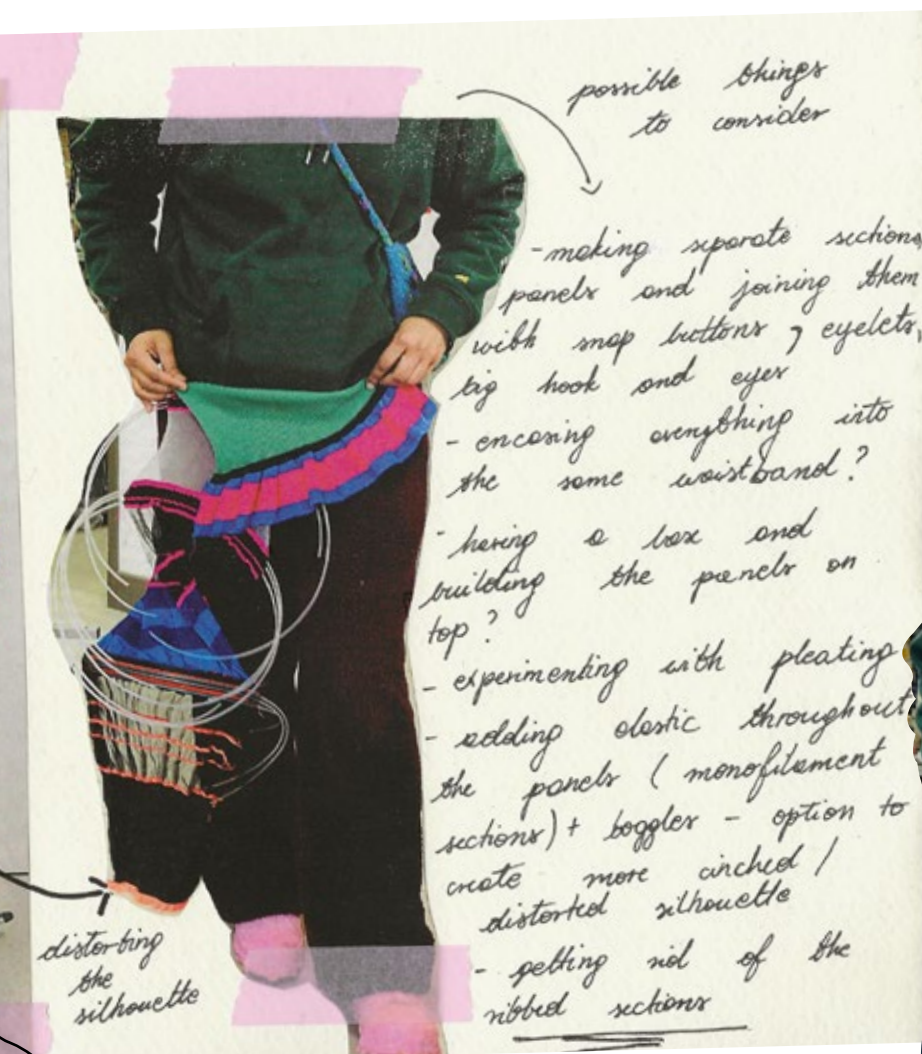 possible things
to consider
-making separate sections,
panels and joining them
with snap buttons, eyelets,
big hook and eyes
- encasing everything into
the same waistband?
- having a box and
building the panels on
top?
- experimenting with pleating
- adding elastic throughout
the panels (monofilament
sections) + toggles - option to
create more cinched /
distorted silhouette
- getting rid of the
ribbed sections
distorting
the
silhouette